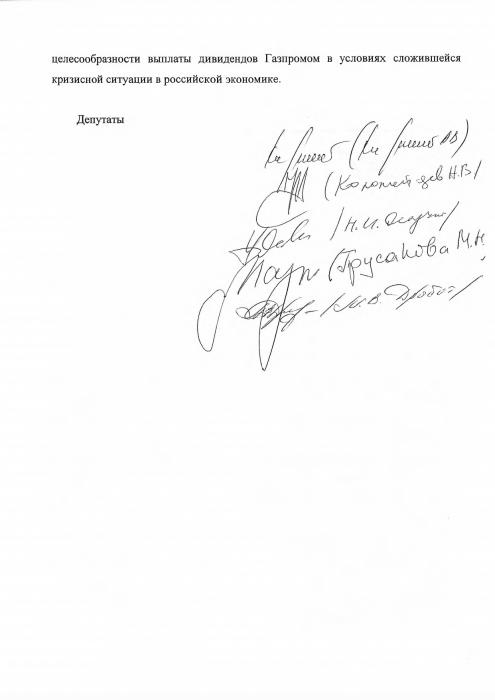 целесообразности выплаты дивидендов Газпромом в условиях сложившейся
кризисной ситуации в российской экономике.
Депутаты
(Коломейцев Н.В)
/Н.И. Осадчий/
(Прусакова М.Н.
/М.В. Дробот/